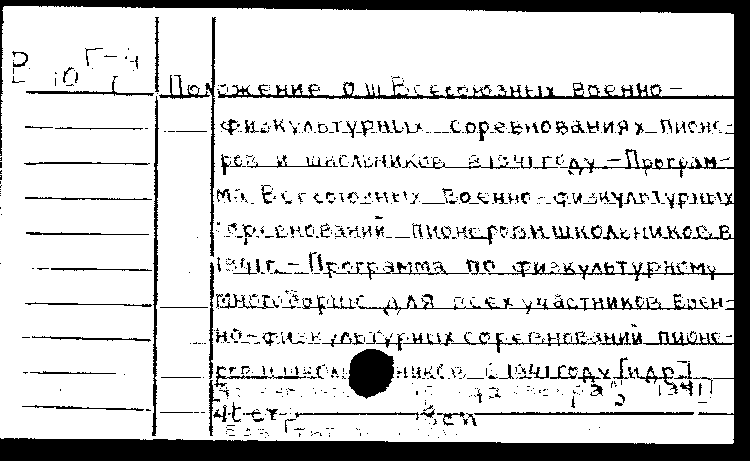 Г-4
10
Положение о III Всесоюзных Военно-
физкультурных соревнованиях пионе-
ров и школьников в 1941 году. - Програм-
ма Всесоюзных Военно-физкультурных
соревнований пионеров и школьников в
1941 г. - Программа по физкультурному
многоборью для всех участников Воен-
но-физкультурных соревнований пионе-
ров и школьников в 1941 году [и др.]
1941]
4 стр. 18 см